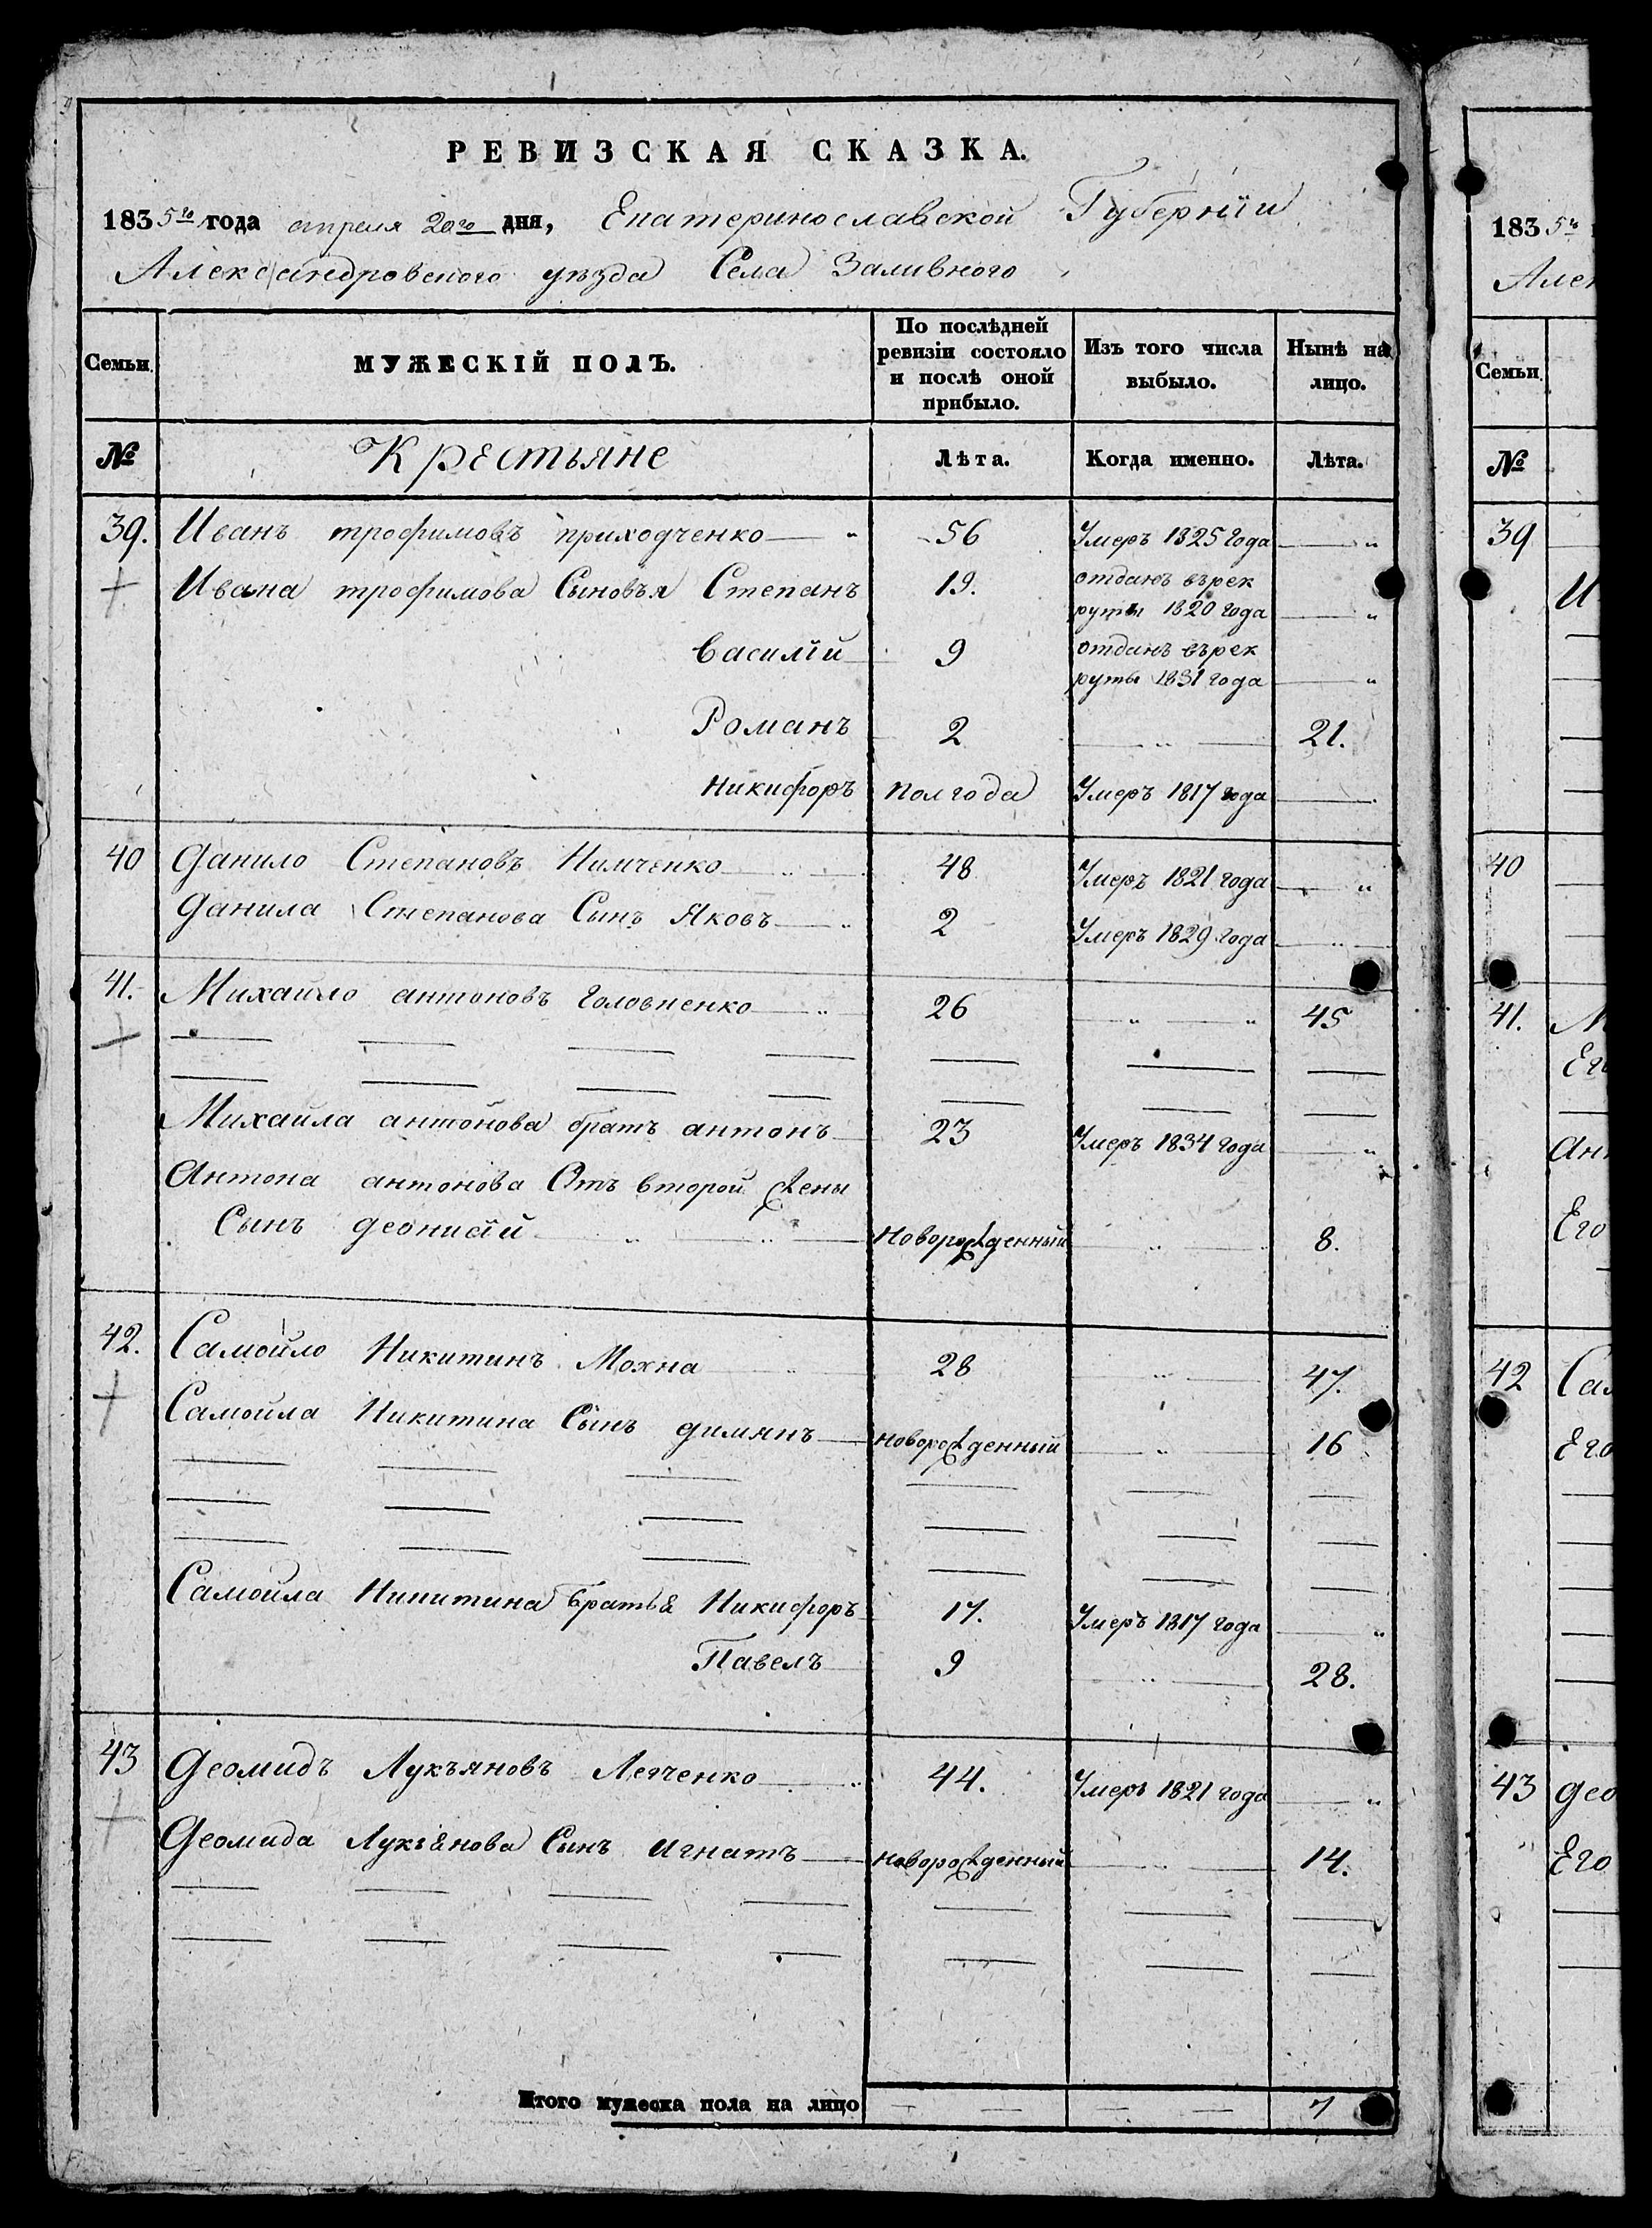 РЕВИЗСКАЯ СКАЗКА.
1835го года апреля 20го дня, Екатеринославской Губерніи
Александровского уѣзда Села Заливного
Семьи.
МУЖЕСКІЙ ПОЛЪ.
По послѣдней ревизіи состояло и послѣ оной прибыло.
Изъ того числа выбыло.
Нынѣ на лицо.
№ Крестьяне Лѣта. Когда именно. Лѣта.
39. Иванъ трофимовъ приходченко 56 Умеръ 1825 года
Ивана трофимова Сыновья Степанъ 19. отданъ върек
руты 1820 года
Василій 9 отданъ върек
руты 1831 года
Романъ 2 21.
Никифоръ полгода Умеръ 1817 года
40 Данило Степановъ Нимченко 48 Умеръ 1821 года
Данила Степанова Сынъ Яковъ 2 Умеръ 1829 года
41. Михайло антоновъ Головненко 26 45
Михайла антонова братъ антонъ 23 Умеръ 1834 года
Антона антонова Отъ второй жены
Сынъ деонисій Новорожденный 8.
42. Самойло Никитинъ Мохна 28 47.
Самойла Никитина Сынъ димянъ новорожденный 16
Самойла Никитина Братья Никифоръ 17. Умеръ 1817 года
Павелъ 9 28.
43 Деомидъ Лукъяновъ Легченко 44. Умеръ 1821 года
Деомида Лукъянова Сынъ Игнатъ новорожденный 14.
Итого мужеска пола на лицо 7
1835го
Алек
Семьи.
№
39
И
40
41. М
Его
Ант
Его
42 Сам
Его
43 део
Его